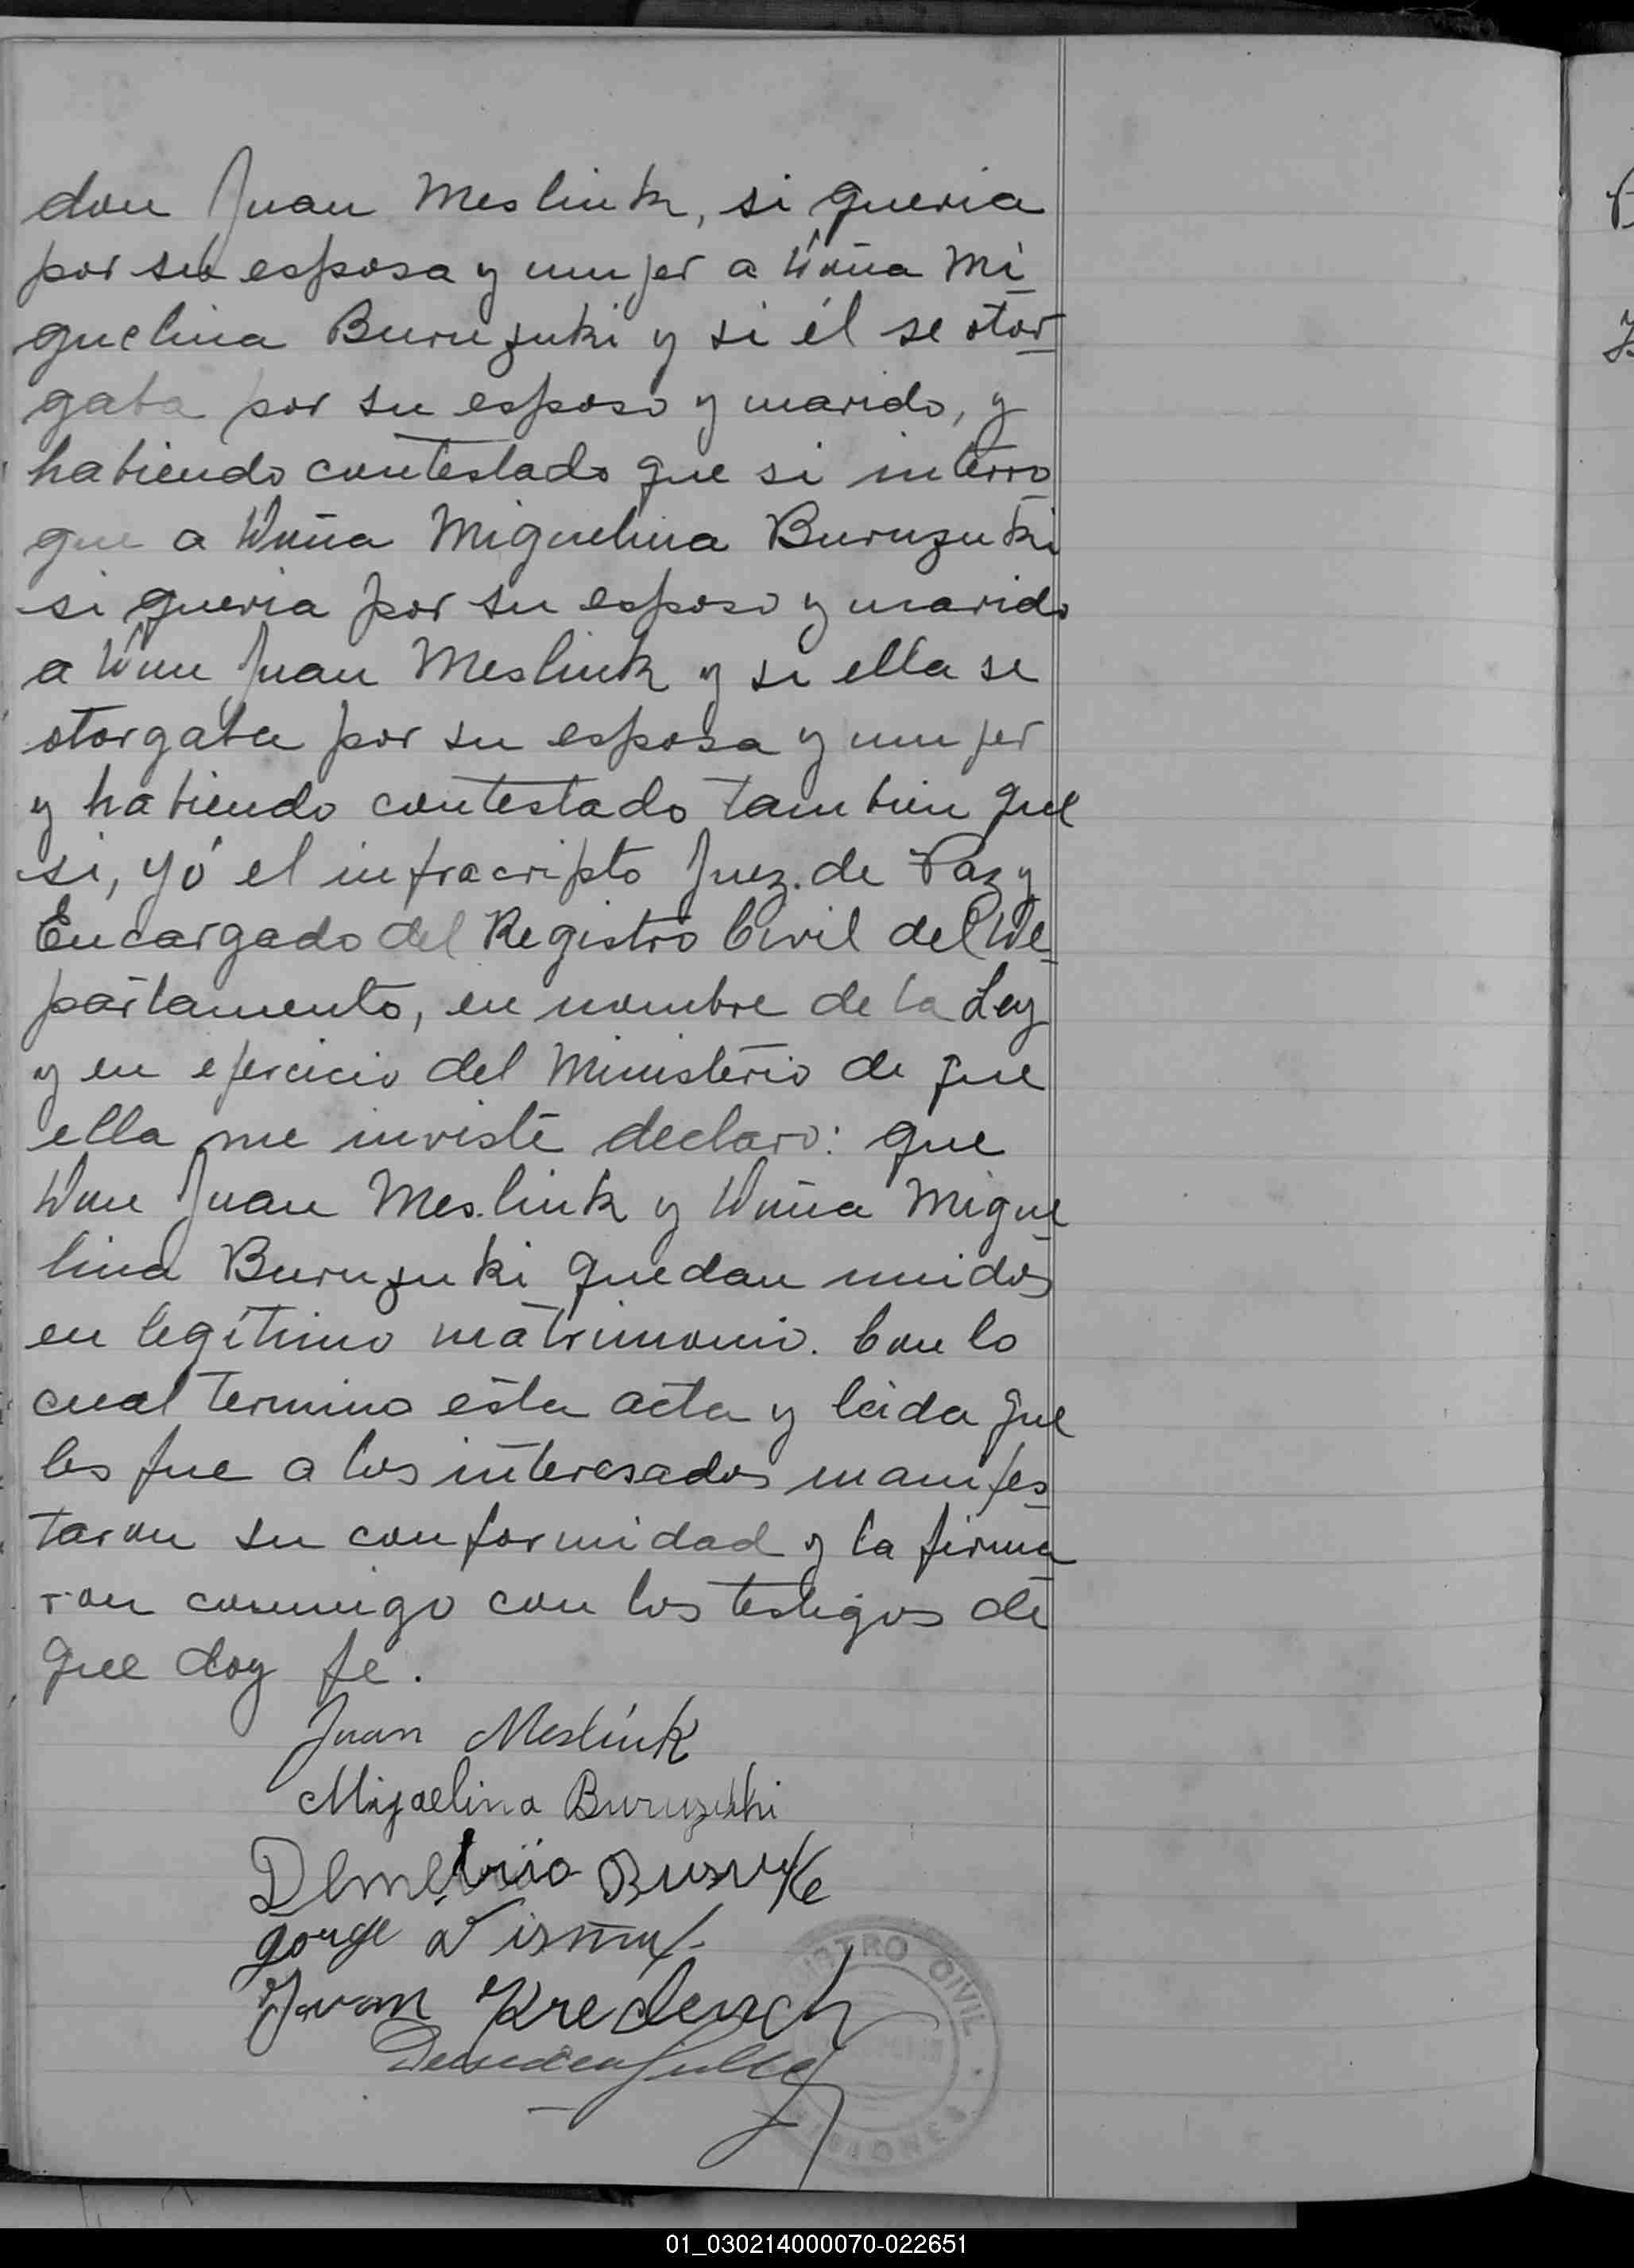 don Juan Meslink, si queria
por su esposa y mujer a Doña Mi-
guelina Buruzuki y si él se otor-
gaba por su esposo y marido, y
habiendo contestado que si interro-
gue a Doña Miguelina Buruzuki
si queria por su esposo y marido
a Don Juan Meslink y si ella se
otorgaba por su esposa y mujer
y habiendo contestado tambien que
si, yó el infracripto Juez de Paz y
Encargado del Registro Civil del De-
partamento, en nombre de la Ley
y en ejercicio del Ministerio de que
ella me inviste declaro: que
Don Juan Meslink y Doña Migue-
lina Buruzuki quedan unidos
en legítimo matrimonio. Con lo
cual termino esta acta y leida que
les fue a los interesados manifes-
taron su conformidad y la firma-
ron conmigo con los testigos de
que doy fe.
Juan Meslink
Migaelina Buruzuki
Demetrio
Jorge
Juan
REGISTRO CIVIL
MISIONES
01_030214000070-022651